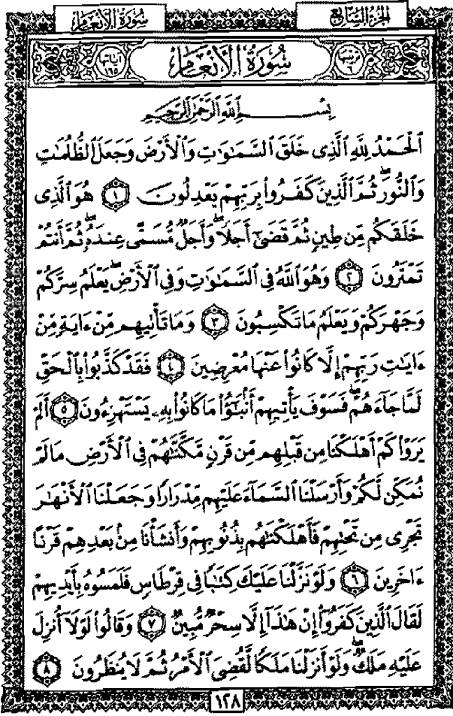 الجزء السابع
سورة الأنعام
ترتيبها ٦
سُورَةُ الأَنْعَامِ
آياتها ١٦٥
بِسْمِ اللَّهِ الرَّحْمَٰنِ الرَّحِيمِ
الْحَمْدُ لِلَّهِ الَّذِي خَلَقَ السَّمَاوَاتِ وَالْأَرْضَ وَجَعَلَ الظُّلُمَاتِ
وَالنُّورَ ۖ ثُمَّ الَّذِينَ كَفَرُوا بِرَبِّهِمْ يَعْدِلُونَ ١ هُوَ الَّذِي
خَلَقَكُم مِّن طِينٍ ثُمَّ قَضَىٰ أَجَلًا ۖ وَأَجَلٌ مُّسَمًّى عِندَهُ ۖ ثُمَّ أَنتُمْ
تَمْتَرُونَ ٢ وَهُوَ اللَّهُ فِي السَّمَاوَاتِ وَفِي الْأَرْضِ ۖ يَعْلَمُ سِرَّكُمْ
وَجَهْرَكُمْ وَيَعْلَمُ مَا تَكْسِبُونَ ٣ وَمَا تَأْتِيهِم مِّنْ ءَايَةٍ مِّنْ
ءَايَاتِ رَبِّهِمْ إِلَّا كَانُوا عَنْهَا مُعْرِضِينَ ٤ فَقَدْ كَذَّبُوا بِالْحَقِّ
لَمَّا جَاءَهُمْ ۖ فَسَوْفَ يَأْتِيهِمْ أَنبَٰٓؤُا مَا كَانُوا بِهِ يَسْتَهْزِءُونَ ٥ أَلَمْ
يَرَوْا كَمْ أَهْلَكْنَا مِن قَبْلِهِم مِّن قَرْنٍ مَّكَّنَّاهُمْ فِي الْأَرْضِ مَا لَمْ
نُمَكِّن لَّكُمْ وَأَرْسَلْنَا السَّمَاءَ عَلَيْهِم مِّدْرَارًا وَجَعَلْنَا الْأَنْهَارَ
تَجْرِي مِن تَحْتِهِمْ فَأَهْلَكْنَاهُم بِذُنُوبِهِمْ وَأَنشَأْنَا مِن بَعْدِهِمْ قَرْنًا
ءَاخَرِينَ ٦ وَلَوْ نَزَّلْنَا عَلَيْكَ كِتَابًا فِي قِرْطَاسٍ فَلَمَسُوهُ بِأَيْدِيهِمْ
لَقَالَ الَّذِينَ كَفَرُوا إِنْ هَٰذَا إِلَّا سِحْرٌ مُّبِينٌ ٧ وَقَالُوا لَوْلَا أُنزِلَ
عَلَيْهِ مَلَكٌ ۖ وَلَوْ أَنزَلْنَا مَلَكًا لَّقُضِيَ الْأَمْرُ ثُمَّ لَا يُنظَرُونَ ٨
١٢٨